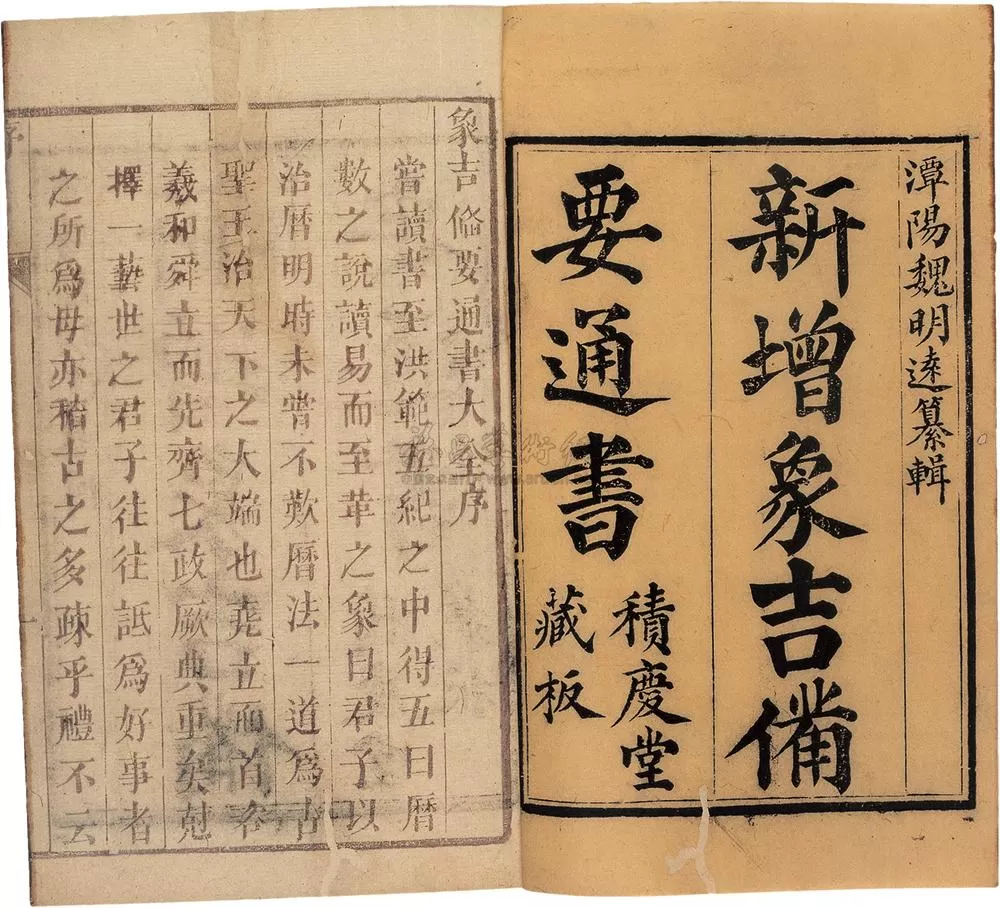 潭陽魏明遠纂輯
新增象吉備
要通書
積慶堂
藏板
象吉俻要通書大全序
嘗讀書至洪範五紀之中得五曰曆
數之說讀易而至革之象曰君子以
治曆明時未嘗不歎曆法一道為古
聖王治天下之大端也堯立而首咨
羲和舜立而先齊七政厥典重矣尅
擇一藝世之君子往往詆爲好事者
之所爲毋亦稽古之多疎乎禮不云
序
一